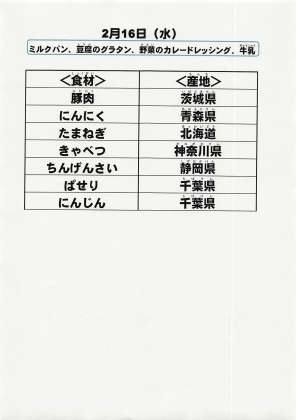 2月16日（水）
ミルクパン、豆腐のグラタン、野菜のカレードレッシング、牛乳
＜食材＞ ＜産地＞
豚肉 茨城県
にんにく 青森県
たまねぎ 北海道
きゃべつ 神奈川県
ちんげんさい 静岡県
ぱせり 千葉県
にんじん 千葉県